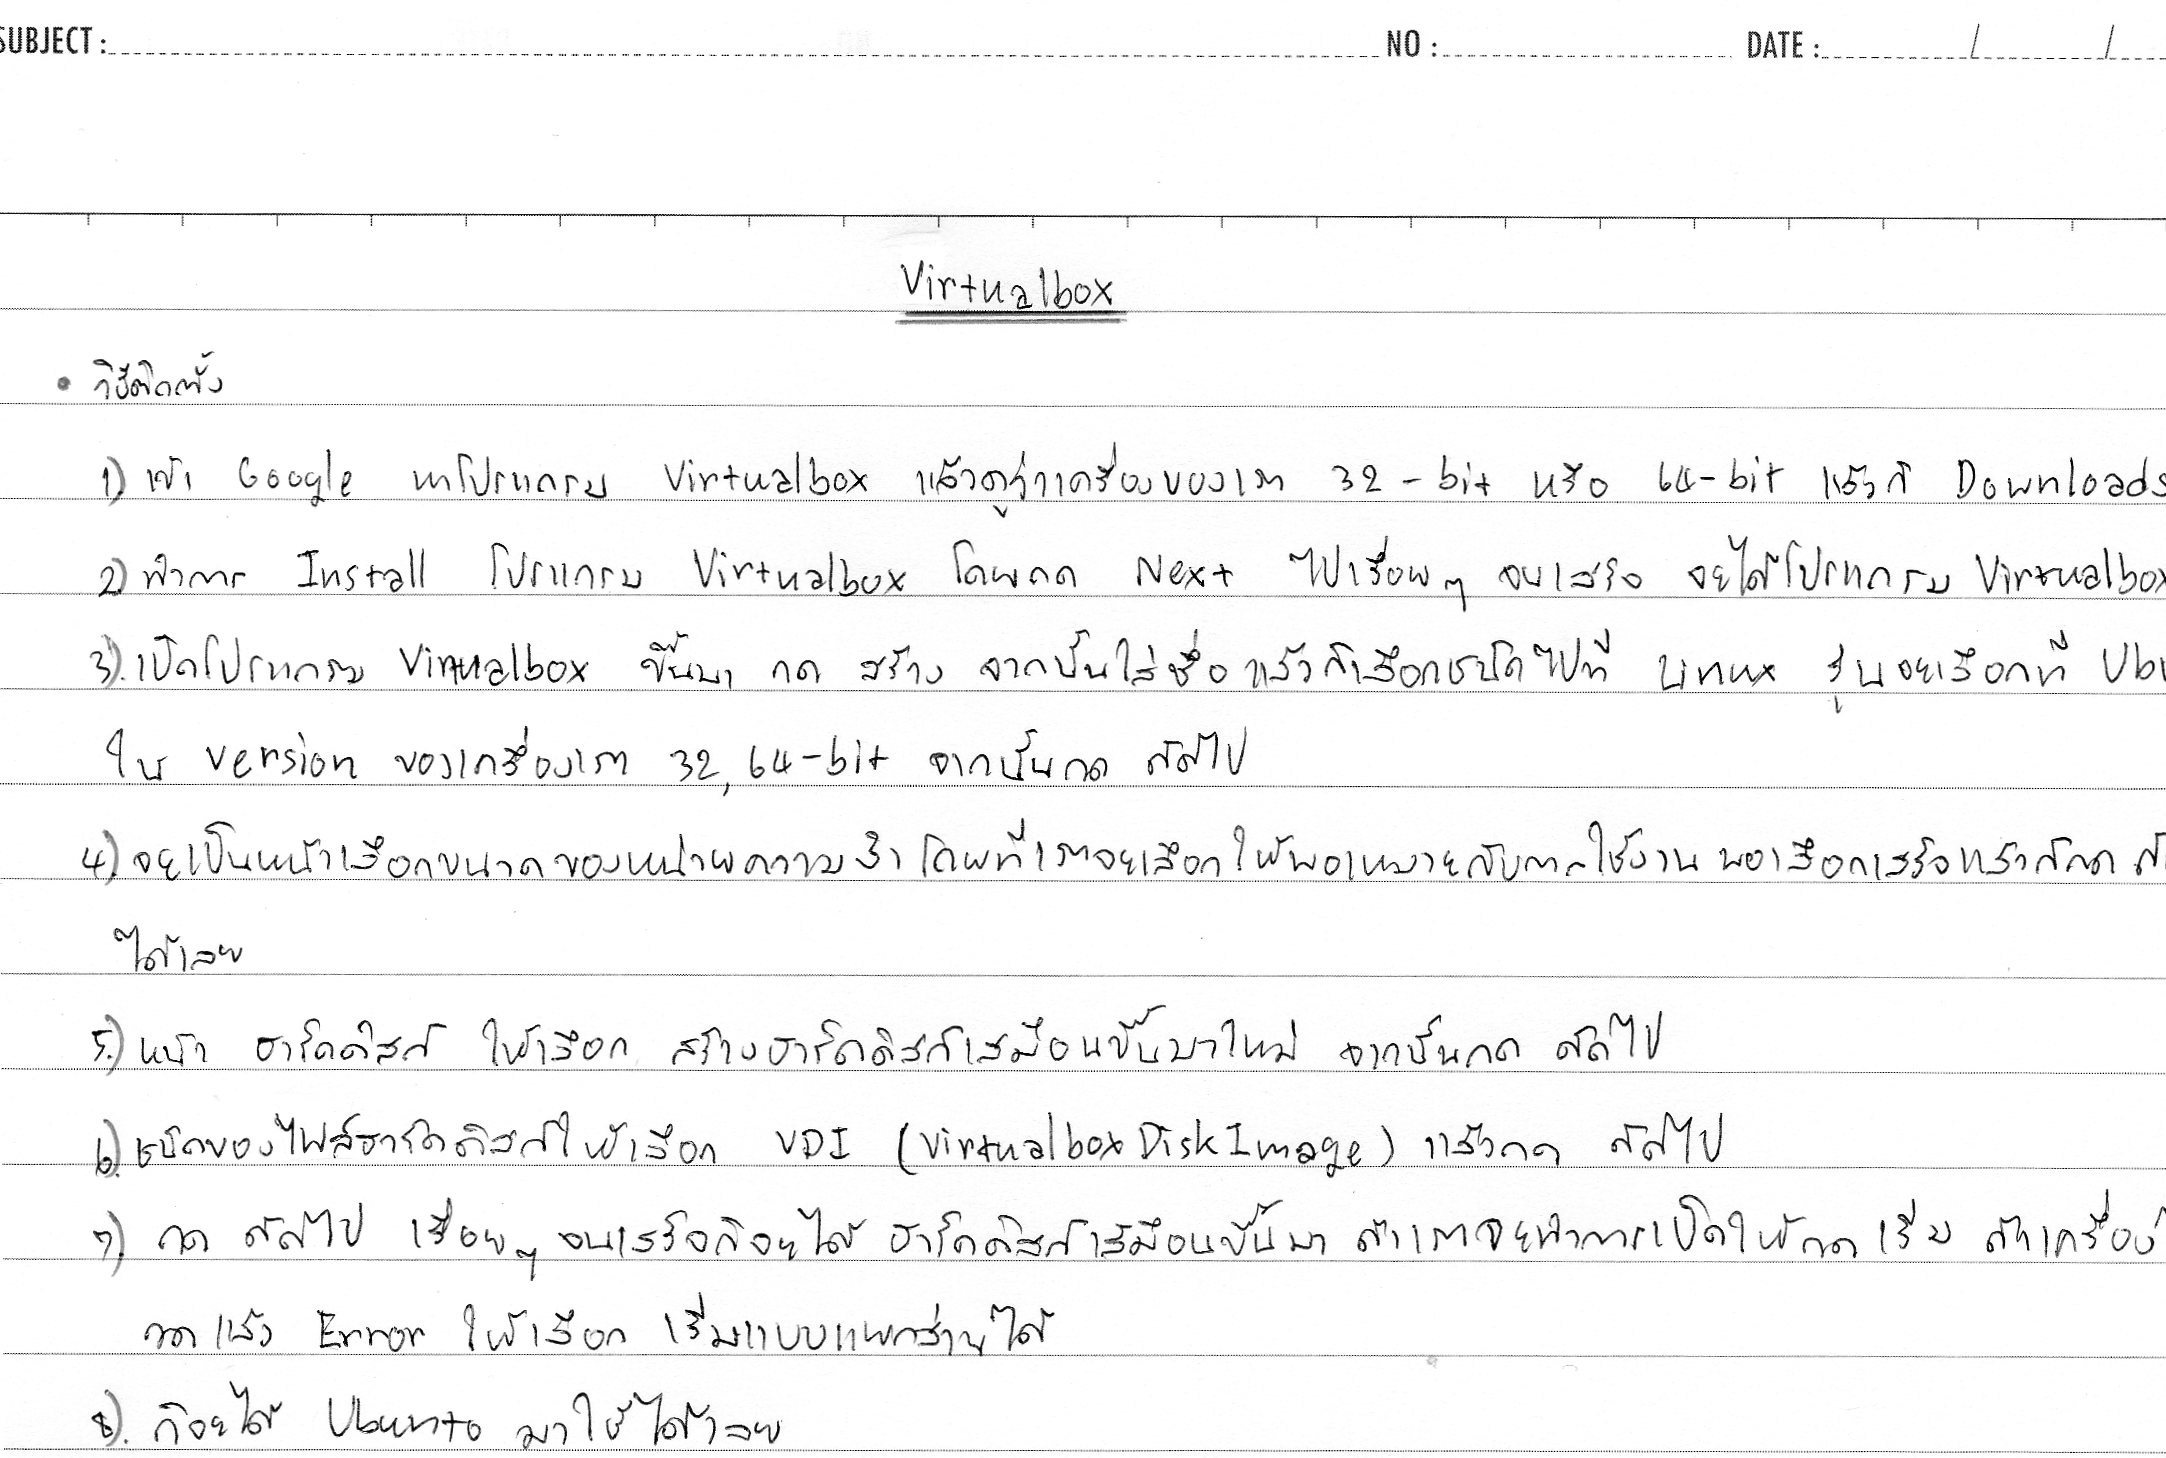 SUBJECT : NO : DATE : / /
Virtualbox
• วิธีติดตั้ง
1) เข้า Google หาโปรแกรม Virtualbox แล้วดูว่าเครื่องของเรา 32-bit หรือ 64-bit แล้วก็ Downloads
2) ทำการ Install โปรแกรม Virtualbox โดยกด Next ไปเรื่อยๆ จนเสร็จ จะได้โปรแกรม Virtualbox
3). เปิดโปรแกรม Virtualbox ขึ้นมา กด สร้าง จากนั้นใส่ชื่อ แล้วก็เลือกชนิดไปที่ Linux รุ่นจะเลือกที่
ใน version ของเครื่องเรา 32, 64-bit จากนั้นกด ถัดไป
4). จะเป็นหน้าเลือกขนาดของหน่วยความจำ โดยที่เราจะเลือกให้พอเหมาะกับการใช้งาน พอเลือกเสร็จแล้วก็กด
ได้เลย
5.) หน้า ฮาร์ดดิสก์ ให้เลือก สร้างฮาร์ดดิสก์เสมือนขึ้นมาใหม่ จากนั้นกด ถัดไป
6.) ชนิดของไฟล์ฮาร์ดดิสก์ให้เลือก VDI (Virtualbox Disk Image) แล้วกด ถัดไป
7). กด ถัดไป เรื่อยๆ จนเสร็จก็จะได้ ฮาร์ดดิสก์เสมือนขึ้นมา ถ้าเราจะทำการเปิดให้กด เริ่ม ถ้าเครื่อง
กดแล้ว Error ให้เลือก เริ่มแบบแยกส่วนได้
8). ก็จะได้ Ubunto มาใช้ได้เลย